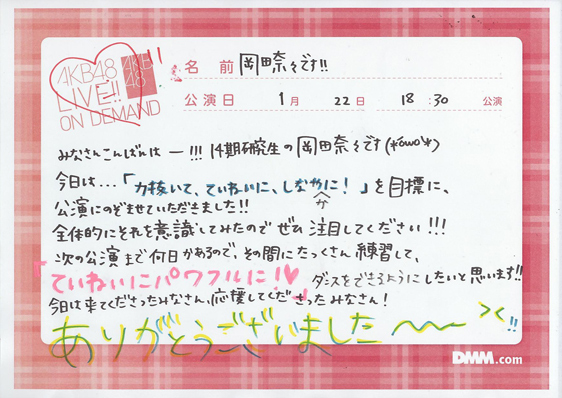 AKB48
LIVE!!
ON DEMAND
AKB
48
名 前 岡田奈々です!!
公演日 1月 22日 18:30 公演
みなさんこんばんはー!!! 14期研究生の岡田奈々です(*ơωơ*)
今日は…「力抜いて、ていねいに、しなやかに!」を目標に、
公演にのぞませていただきました!!
全体的にそれを意識してみたのでぜひ注目してください!!!
次の公演まで何日かあるので、その間にたっくさん練習して、
「ていねいにパワフルに!♡」ダンスをできるようにしたいと思います!!
今日は来てくださったみなさん、応援してくださったみなさん!
ありがとうございました〜〜 ><!!
DMM.com